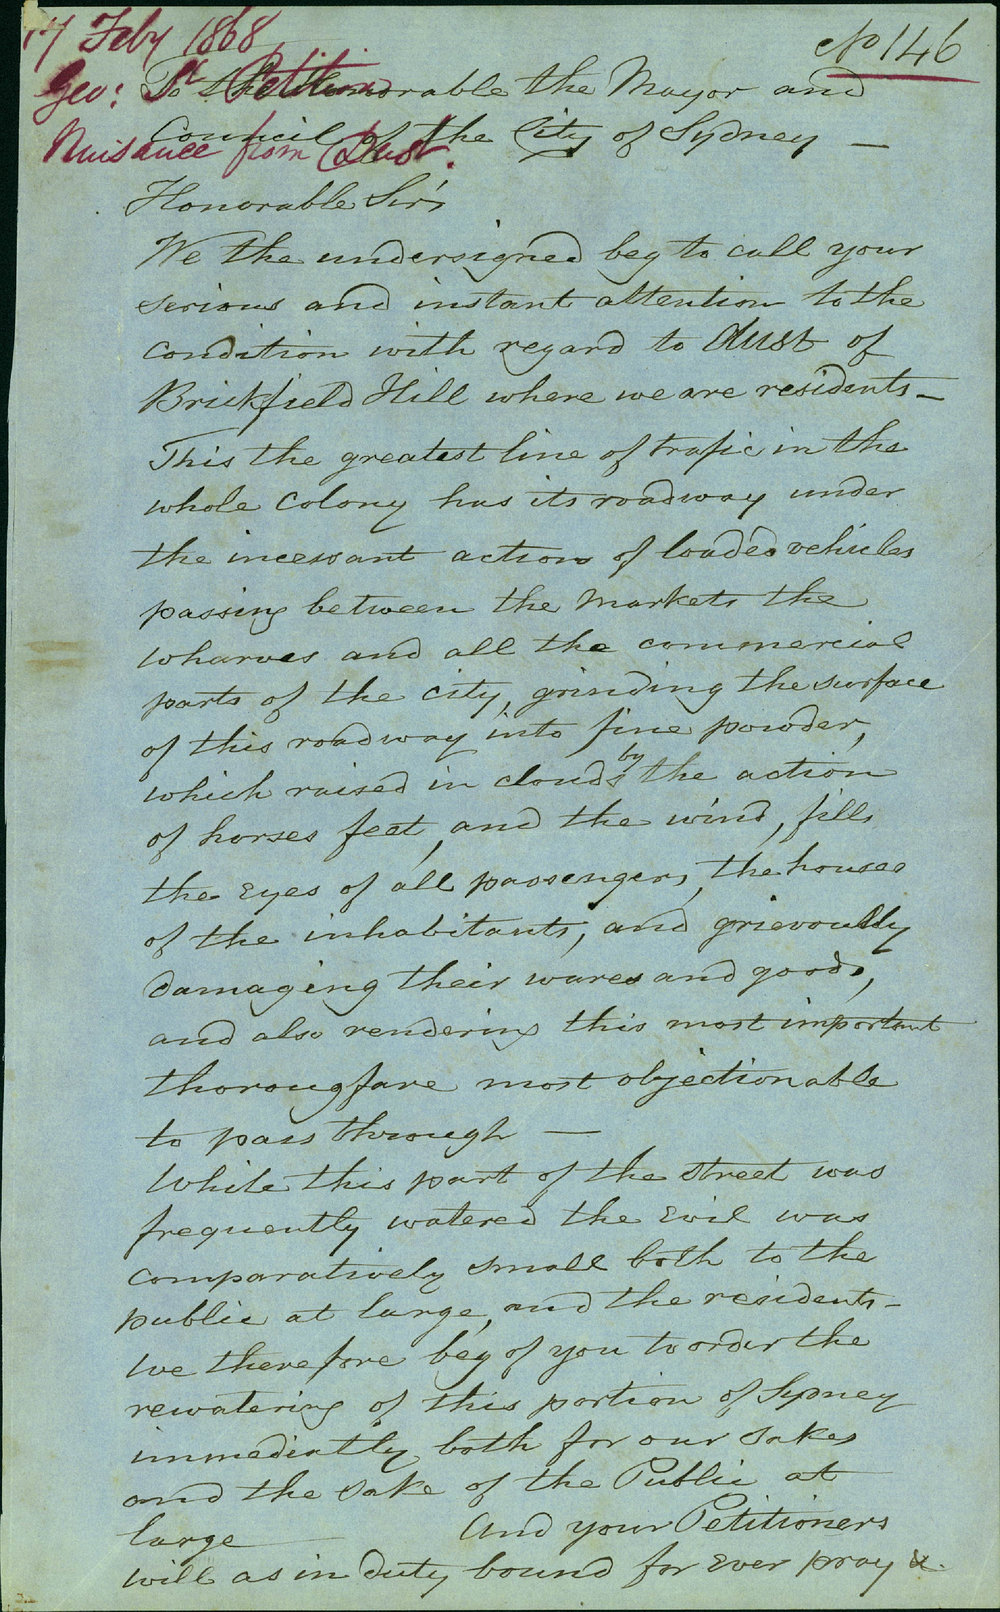 17 Feby 1868
No 146
Geo: St Petition
Nuisance from Dust.
To the Honorable the Mayor and
Council of the City of Sydney —
Honorable Sir's
We the undersigned beg to call your
serious and instant attention to the
condition with regard to dust of
Brickfield Hill where we are residents —
This the greatest line of trafic in the
whole colony has its roadway under
the incessant action of loaded vehicles
passing between the Markets the
wharves and all the commercial
parts of the city, grinding the surface
of this roadway into fine powder,
which raised in clouds by the action
of horses feet, and the wind, fills
the Eyes of all passengers, the houses
of the inhabitants, and grievously
damaging their wares and goods,
and also rendering this most important
thorougfare most objectionable
to pass through —
While this part of the street was
frequently watered the Evil was
comparatively small both to the
public at large, and the residents —
We therefore beg of you to order the
rewatering of this portion of Sydney
immediatly both for our sakes
and the sake of the Public at
large — And your Petitioners
will as in duty bound for Ever pray &c.